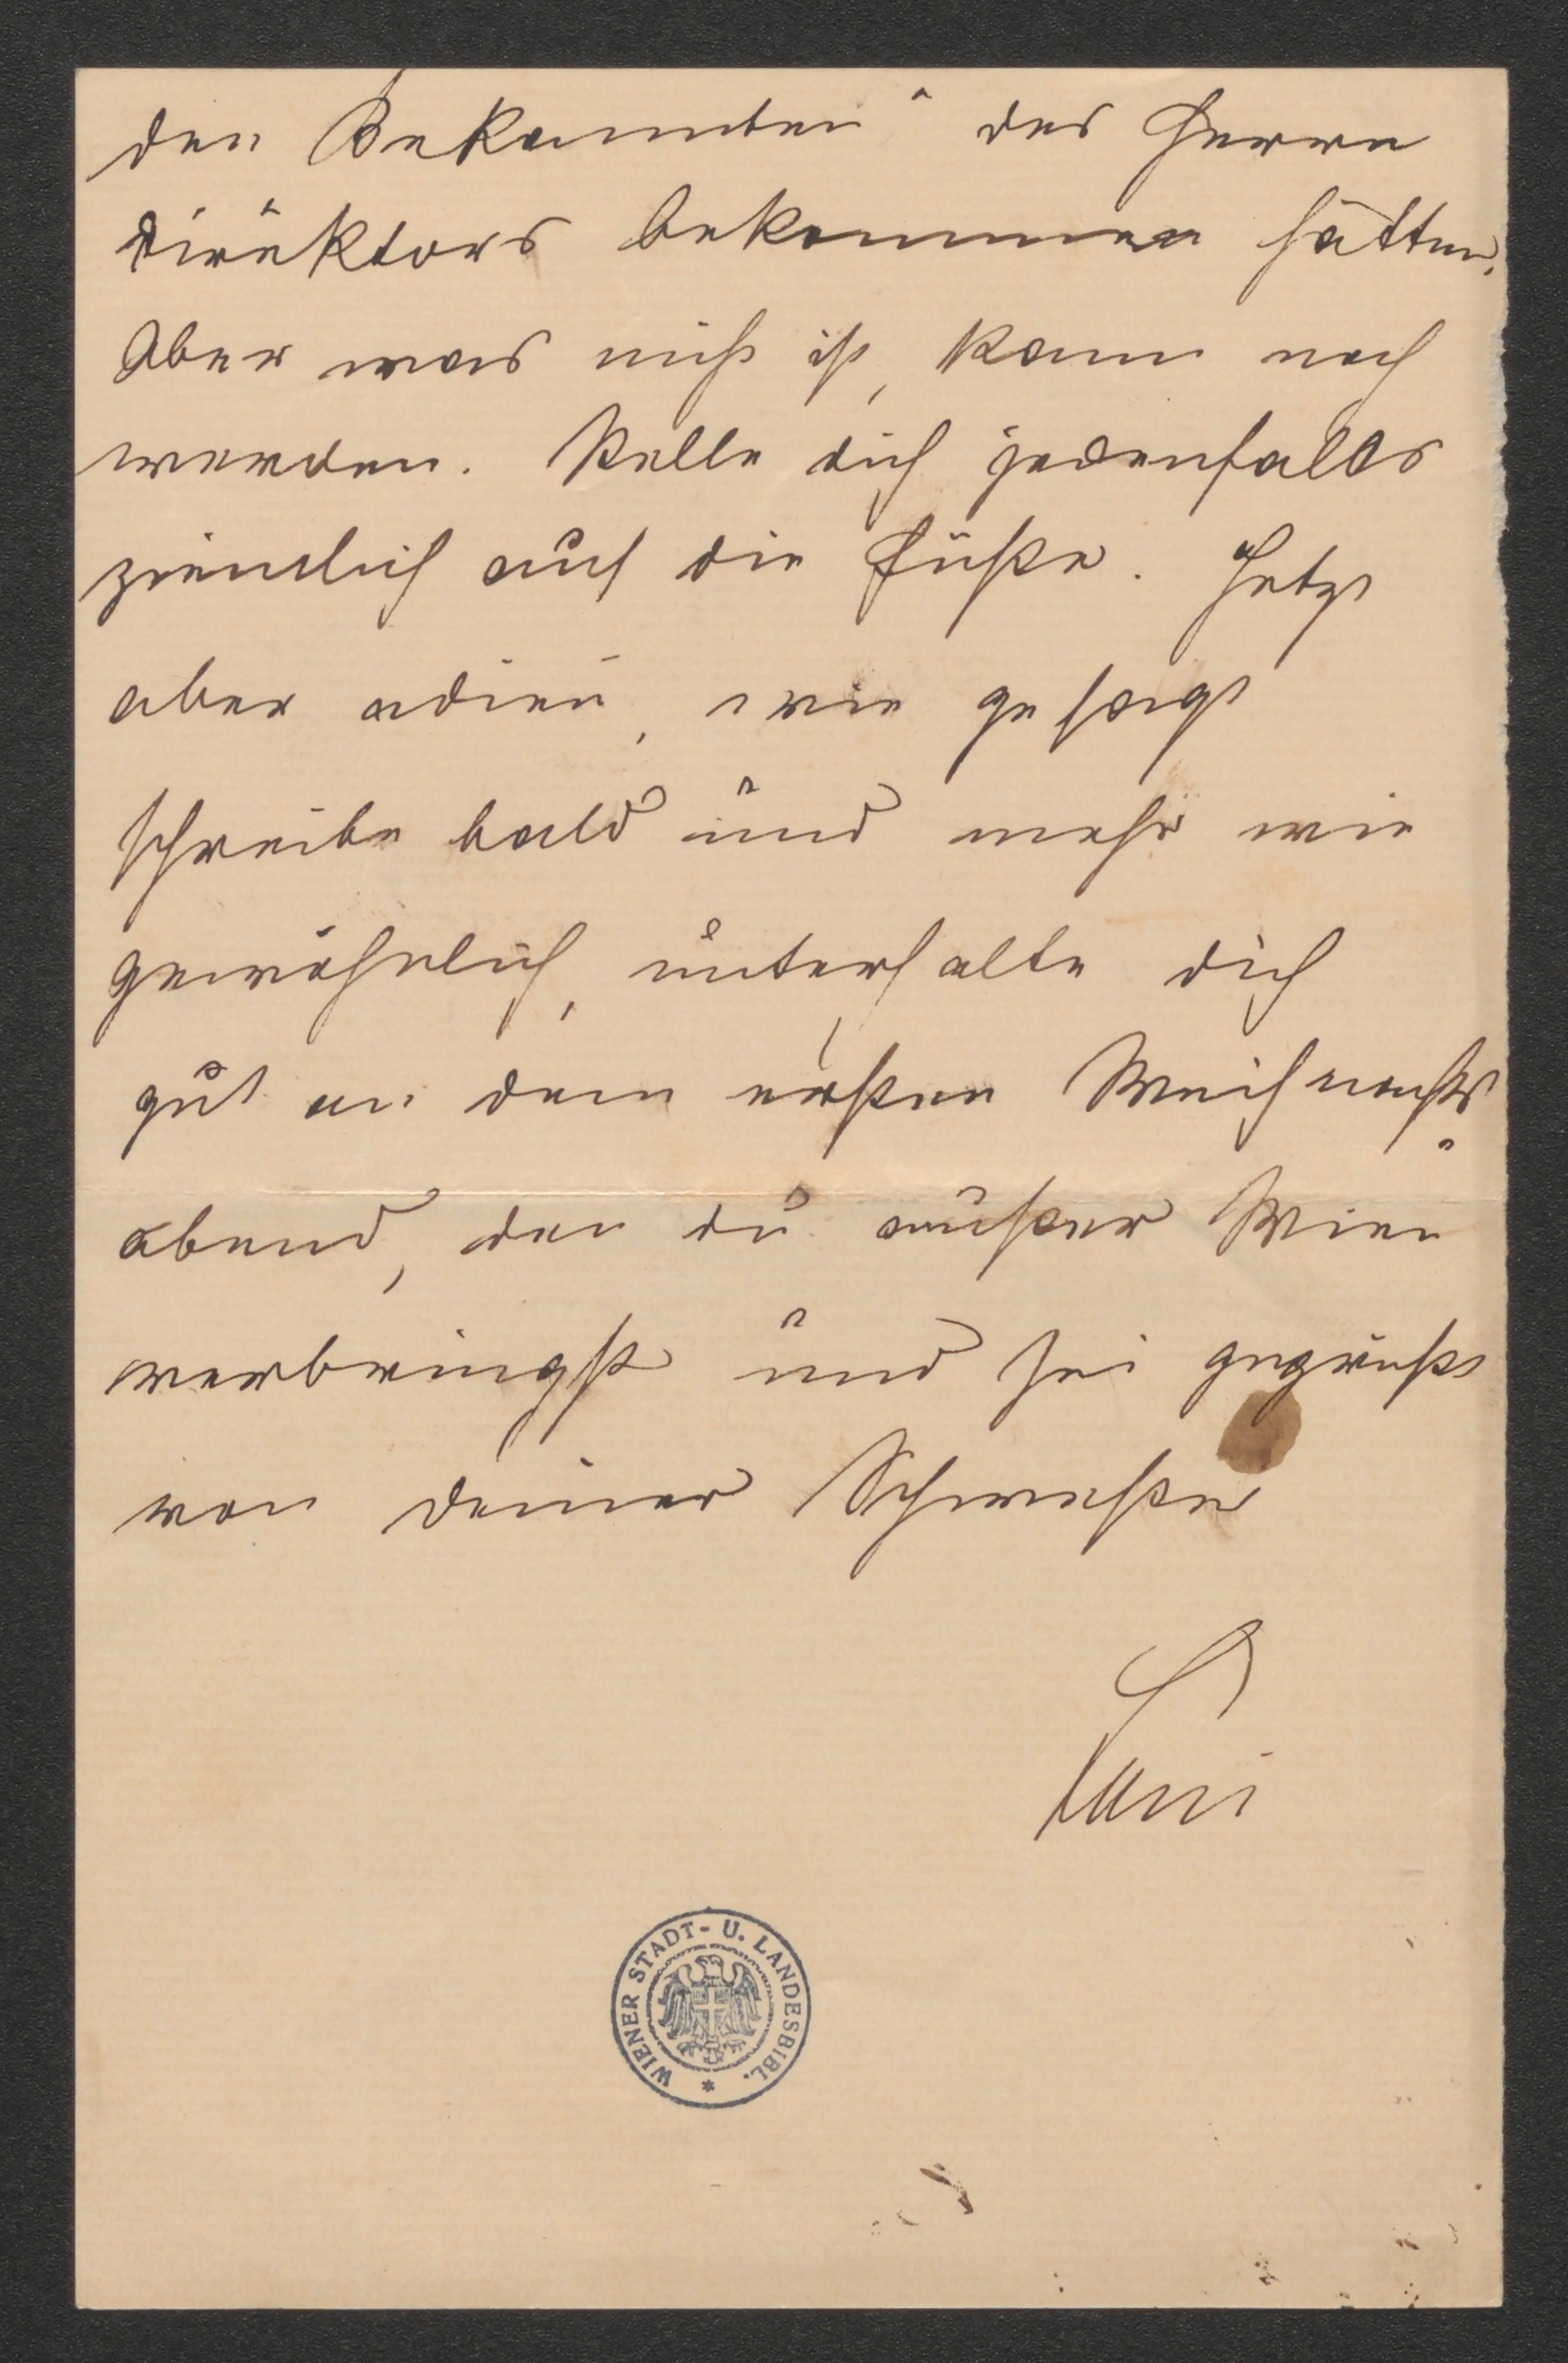 den Bekannten des Herrn
Direktors bekommen hätten.
Aber was nicht ist, kann noch
werden. Stelle dich jedenfalls
ziemlich auf die Füße. Jetzt
aber adieu, wie gesagt
schreibe bald und mehr wie
gewöhnlich, unterhalte dich
gut an dem ersten Weihnachts
abend, den du außer Wien
verbringst und sei gegrüßt
von deiner Schwester
WIENER STADT- U. LANDESBIBL.